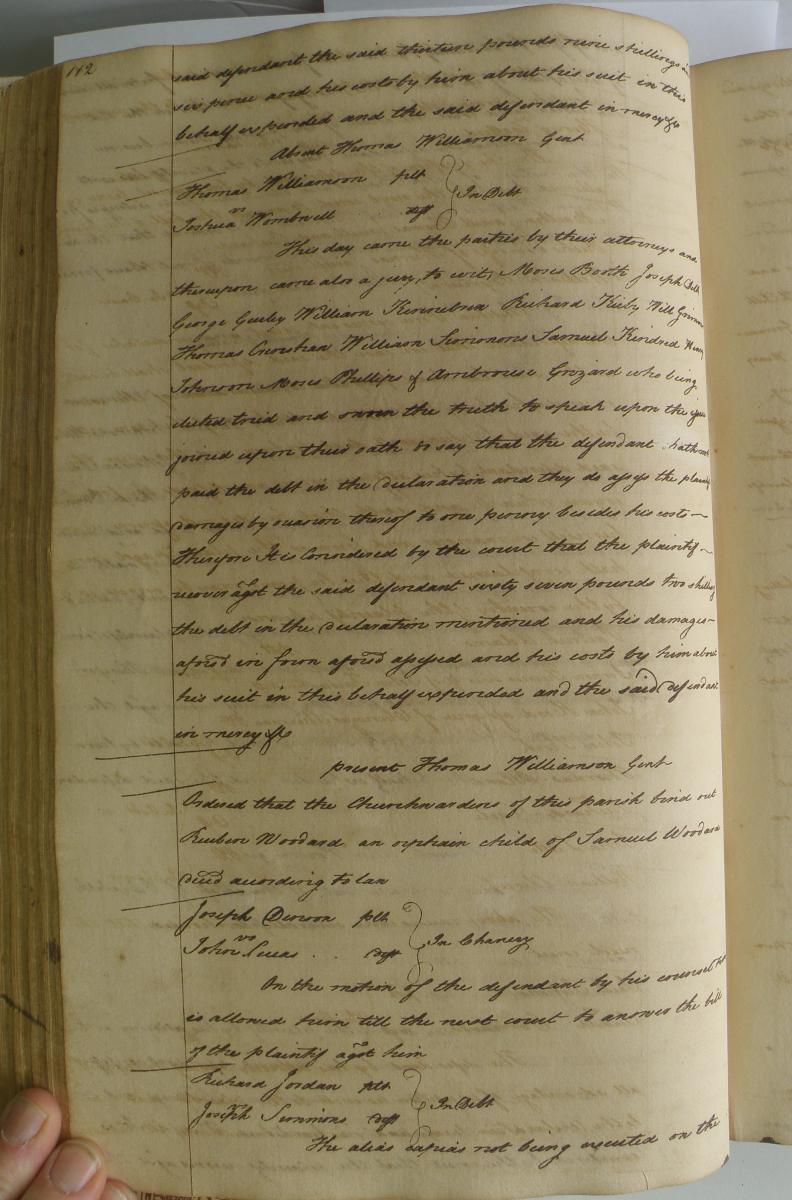 112
said defendant the said thirteen pounds nine shillings &
six pence and his costs by him about his suit in this
behalf expended and the said defendant in mercy &c
Absent Thomas Williamson Gent
Thomas Williamson plt
vs
In Debt
Joshua Wombwell deft
This day came the parties by their attorneys and
thereupon came also a jury, to wit, Moses Booth Joseph
George Gurley William Kinnebrew Richard Kirby Will
Thomas William Simmons Samuel Kindred Henry
Johnson Moses Phillips & Ambrouse Grizard who being
elected tried and sworn the truth to speak upon the issue
joined upon their oath do say that the defendant hath not
paid the debt in the declaration and they do assess the plaintif
damages by ocasion thereof to one penny besides his costs
Therefore It is Considered by the court that the plaintif
recover agst the said defendant sixty seven pounds two shillings
the debt in the declaration mentioned and his damages
aforsd in form aforsd assessed and his costs by him about
his suit in this behalf expended and the said defendant
in mercy &c
present Thomas Williamson Gent
Ordered that the Churchwardens of this parish bind out
Reuben Woodard an orphain child of Samuel Woodard
decd acording to law
Joseph Denson plt
vs
In Chancry
John Lucas deft
On the motion of the defendant by his councel
is allowed him till the next court to answer the bill
of the plaintif agst him
Richard Jordan plt
vs
In Debt
Joseph Simmons deft
The alias capias not being executed on the